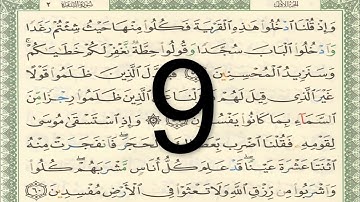 الجزء الأول سورة البقرة ٢
وَإِذْ قُلْنَا ٱدْخُلُوا۟ هَٰذِهِ ٱلْقَرْيَةَ فَكُلُوا۟ مِنْهَا حَيْثُ شِئْتُمْ رَغَدًا
وَٱدْخُلُوا۟ ٱلْبَابَ سُجَّدًا وَقُولُوا۟ حِطَّةٌ نَّغْفِرْ لَكُمْ خَطَٰيَٰكُمْ
وَسَنَزِيدُ ٱلْمُحْسِنِينَ فَبَدَّلَ ٱلَّذِينَ ظَلَمُوا۟ قَوْلًا
غَيْرَ ٱلَّذِى قِيلَ لَهُمْ ظَلَمُوا۟ رِجْزًا مِّنَ
9
ٱلسَّمَآءِ بِمَا كَانُوا۟ يَفْسُقُونَ وَإِذِ ٱسْتَسْقَىٰ مُوسَىٰ
لِقَوْمِهِۦ فَقُلْنَا ٱضْرِب بِّعَصَاكَ ٱلْحَجَرَ فَٱنفَجَرَتْ مِنْهُ
ٱثْنَتَا عَشْرَةَ عَيْنًا قَدْ عَلِمَ كُلُّ أُنَاسٍ مَّشْرَبَهُمْ كُلُوا۟
وَٱشْرَبُوا۟ مِن رِّزْقِ ٱللَّهِ وَلَا تَعْثَوْا۟ فِى ٱلْأَرْضِ مُفْسِدِينَ ٦٠